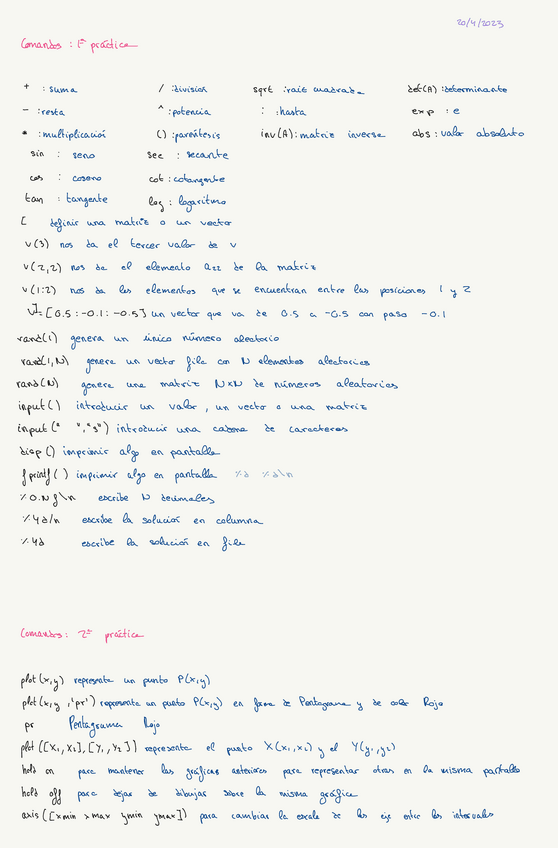 20/4/2023
Comandos : 1ª práctica
+ : suma / : división sqrt : raíz cuadrada det(A) : determinante
- : resta ^ : potencia : : hasta exp : e
* : multiplicación () : paréntesis inv(A) : matriz inversa abs : valor absoluto
sin : seno sec : secante
cos : coseno cot : cotangente
tan : tangente log : logaritmo
[ definir una matriz o un vector
v(3) nos da el tercer valor de v
v(2,2) nos da el elemento a22 de la matriz
v(1:2) nos da los elementos que se encuentran entre las posiciones 1 y 2
v = [0.5 : -0.1 : -0.5] un vector que va de 0.5 a -0.5 con paso -0.1
rand(1) genera un único número aleatorio
rand(1,N) genera un vector fila con N elementos aleatorios
rand(N) genera una matriz N×N de números aleatorios
input() introducir un valor, un vector o una matriz
input(" ","s") introducir una cadena de caracteres
disp () imprimir algo en pantalla
fprintf () imprimir algo en pantalla %d %d\n
%0.Nf\n escribe N decimales
%4d/n escribe la solución en columna
%4d escribe la solución en fila
Comandos : 2ª práctica
plot(x,y) representa un punto P(x,y)
plot(x,y,'pr') representa un punto P(x,y) en forma de Pentagrama y de color Rojo
pr Pentagrama Rojo
plot([X1,X2],[Y1,Y2]) representa el punto X(x1,x2) y el Y(y1,y2)
hold on para mantener las gráficas anteriores para representar otras en la misma pantalla
hold off para dejar de dibujar sobre la misma gráfica
axis([xmin xmax ymin ymax]) para cambiar la escala de los eje entre los intervalos